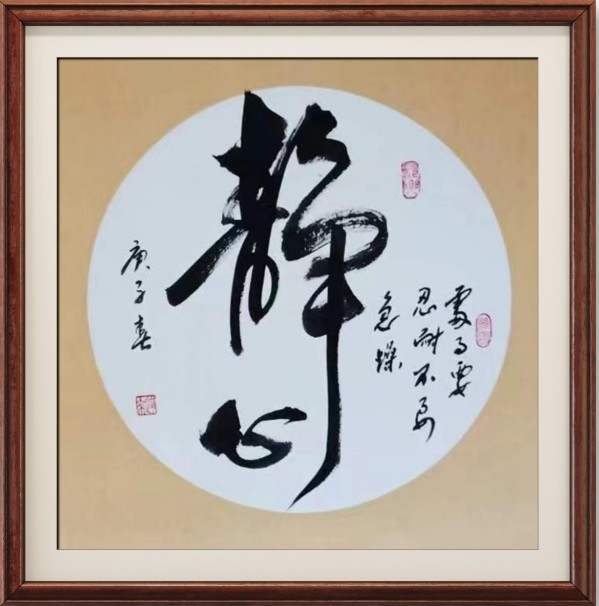 静心
處事要
忍耐不要
急躁
庚子春